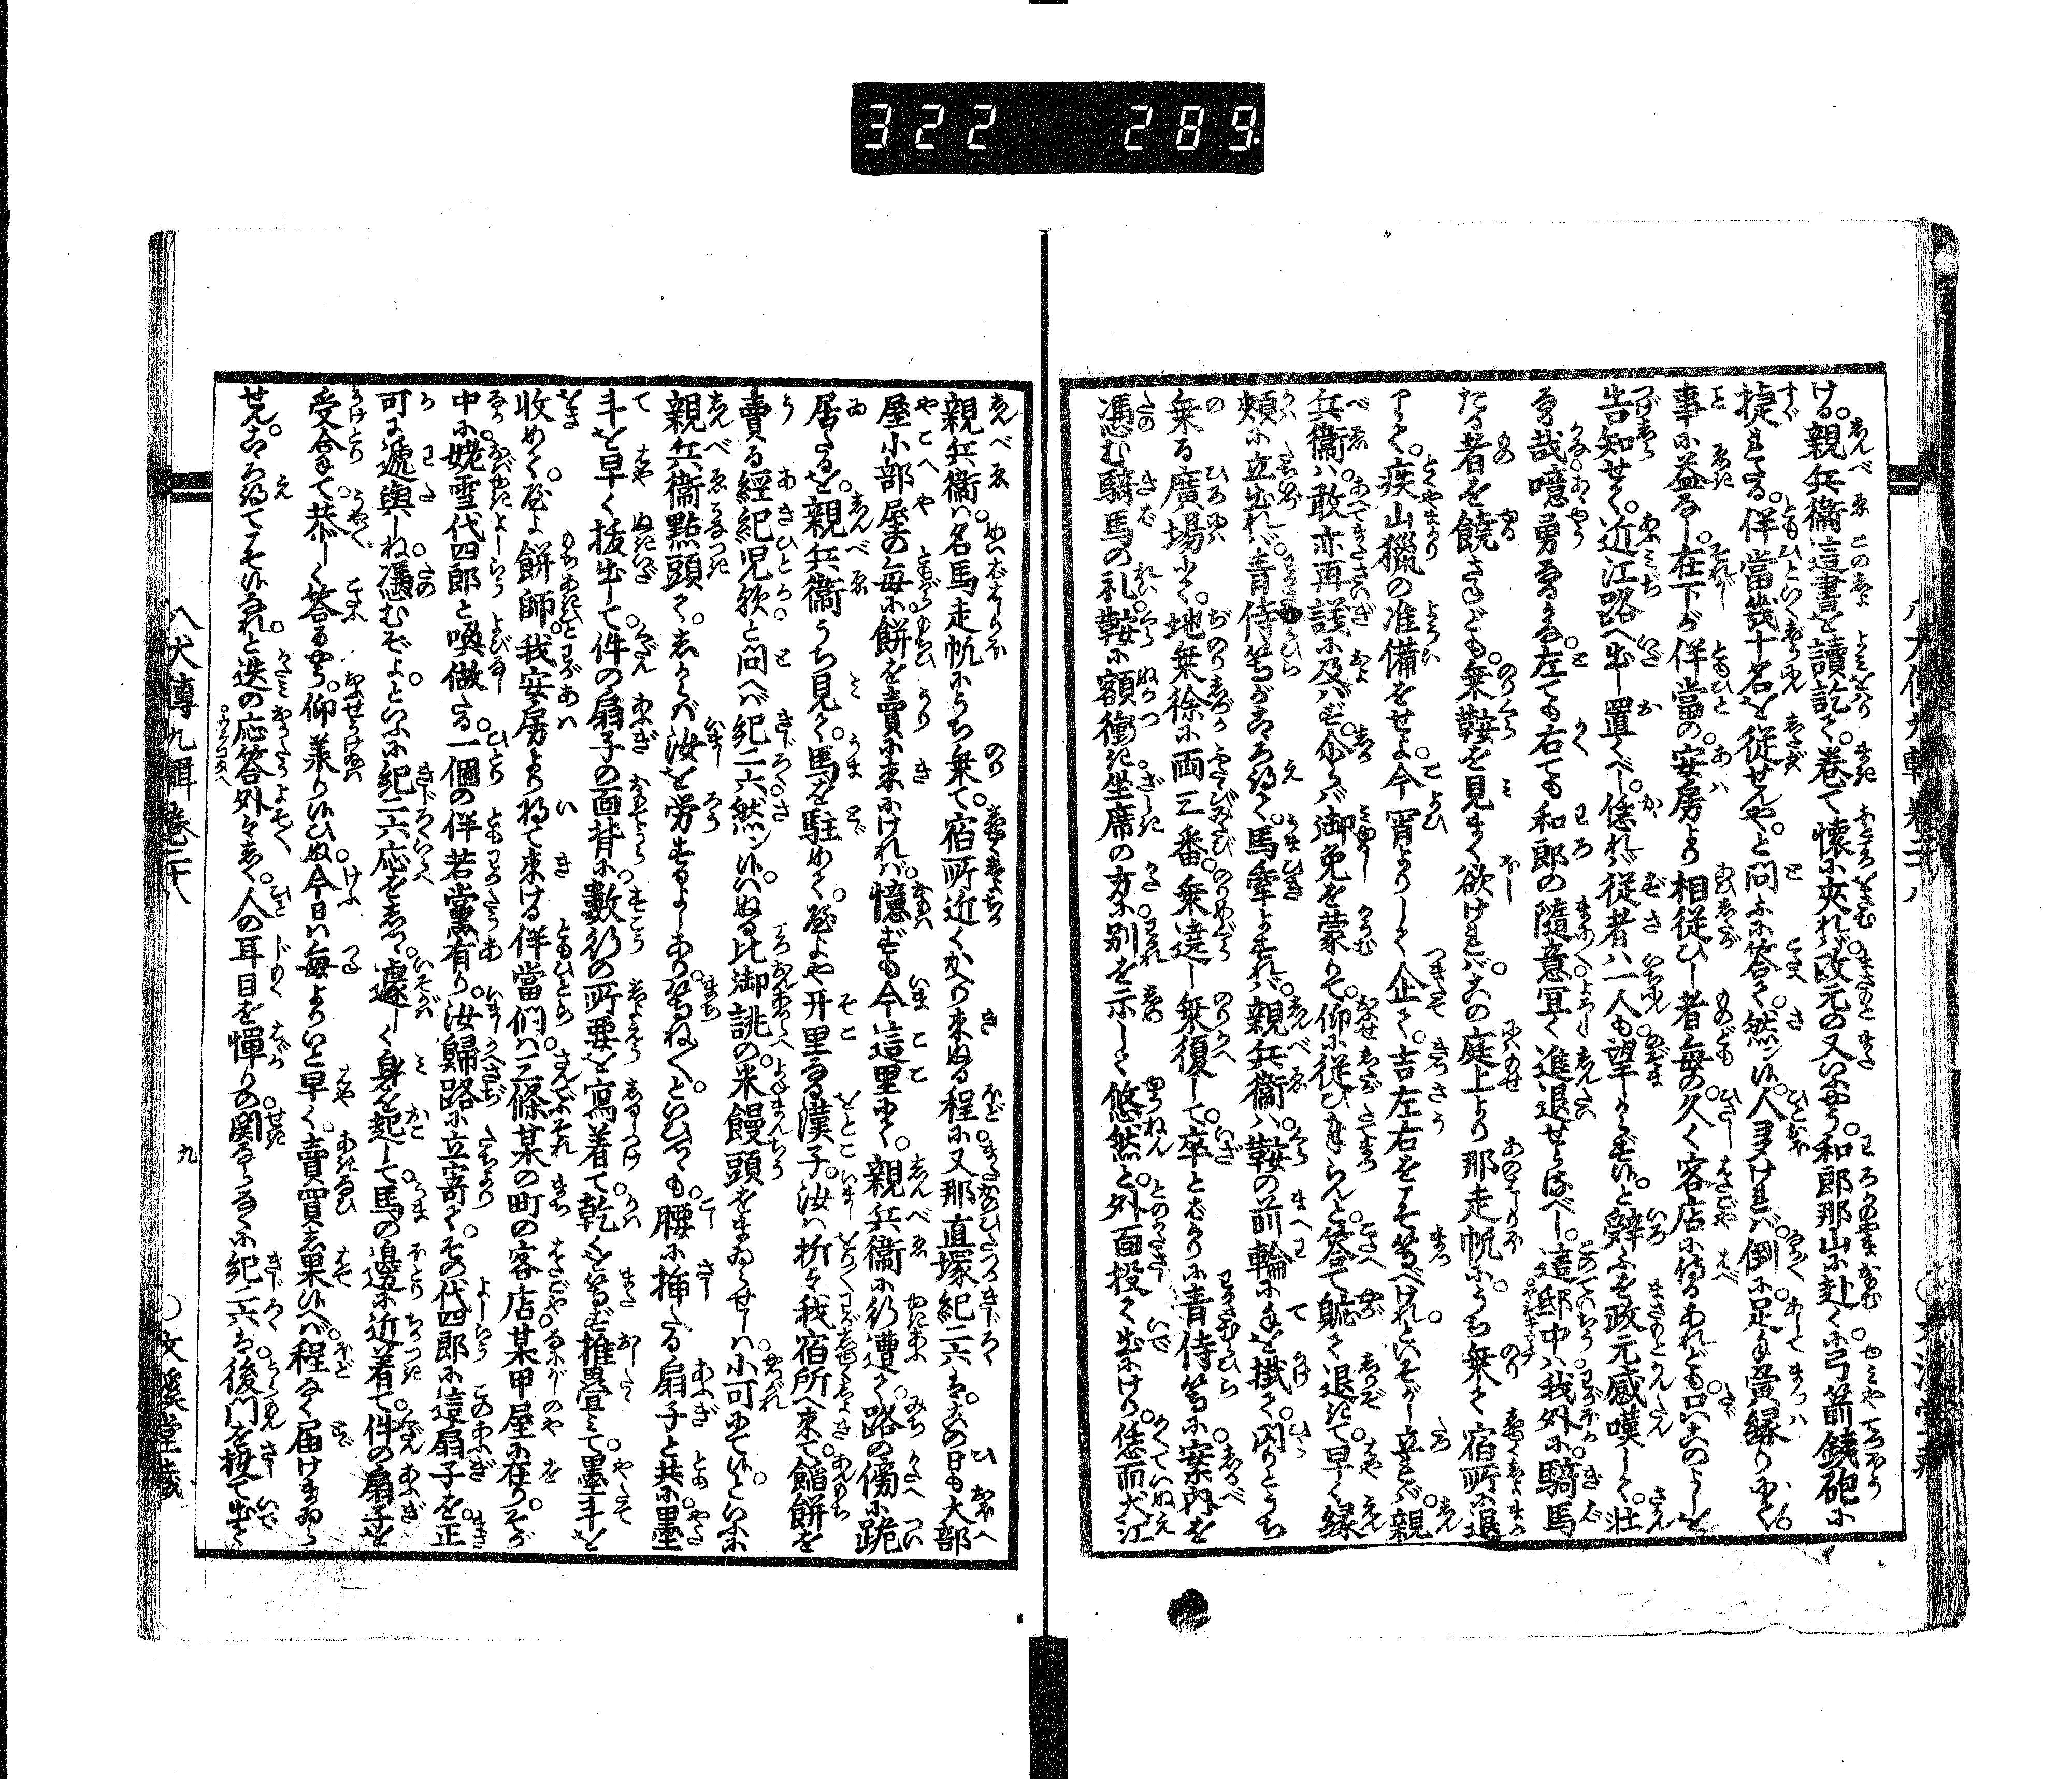 322 289
ける。親兵衞這書を讀訖て。巻て懐に夾れバ政元の又いふやう。和郎那山に赴くに弓箭銕砲に
捷れたる。伴當幾十名を従せんや。と問ふに答て。然ン候。人夛けれバ。倒に足手夤縁りにて。
事に益なし。在下が伴當の安房より相従ひし者毎の。久く客店に侍るあれども。いまだこのよしを
告知せで。近江路へ出し置くべし。恁れバ従者ハ一人も望しからず候。と辭ふを政元感嘆して。壮
なる哉噫勇なるかな。左ても右ても和郎の隨意冝く進退せらるべし。這邸中ハ我外に。騎馬
たる者を饒さゞれども。乗鞍を見まく欲けれバ。この庭上より那走帆に。うち乗て宿所に退
りて。疾山獵の准備をせよ。今宵よりして企て。吉左右をこそ等べけれ。といそがし立れバ。親
兵衞ハ。敢亦再議に及バず。尒らバ御免を蒙りて。仰に従ひ奉らん。と答て躯て退きて。早く縁
頬に立出れバ。青侍等がこゝろ得て。馬牽よすれバ。親兵衞ハ。鞍の前輪に手を掛て。閃りとうち
乗る廣場にて。地乗徐に両三番。乗遶し乗復して。卒とばかりに青侍等に。案内を
憑む騎馬の礼。鞍に額衝き。坐席の方に別を示して。悠然と。外面投て出にけり。恁而犬江
親兵衞ハ。名馬走帆にうち乗て。宿所近くかへり來ぬる程に。又那直塚紀二六ハ。この日も大部
屋小部屋の毎に餅を賣に來にければ。憶ずも今這里にて。親兵衞に礽遭て。路の傍に跪
居たるを。親兵衞うち見て。馬を駐めて。咥よや开里なる漢子。汝ハ折々我宿所へ來て。餡餅を
賣る經紀児欤と問へバ紀二六。然ン候。いぬる比御誂の。米饅頭をまゐらせしハ。小可にて候。といふに
親兵衞點頭て。しからバ汝を労するよしあり。等ねかし。といひつゝも。腰に挿たる扇子と共に。墨
斗を早く拔出して。件の扇子の面背に。數行の所要を寫着て。乾くを等ず推疊みて。墨斗を
收めて。咥よ餅師。我安房より将て來ける伴當們ハ。三條某の町の客店。某甲屋に在り。そが
中に。姥雪代四郎と喚做たる。一個の伴若黨有り。汝歸路に立寄て。その代四郎に這扇子を正
可に遞與しね。憑むぞよ。といふに紀二六応をしつゝ。遽しく身を起して。馬の邉に近着て。件の扇子を
受合もて。恭しく答るやう。仰羨り候ひぬ。今日ハ毎よりいと早く。賣買し果候へバ。程なく届けまゐら
せん。こゝろ得てこそ候なれ。と迭の応答外々しく。人の耳目を憚りの。関ならなくに紀二六ハ。後門を投て出て
八犬傳九輯巻二十八
九
○文溪堂藏